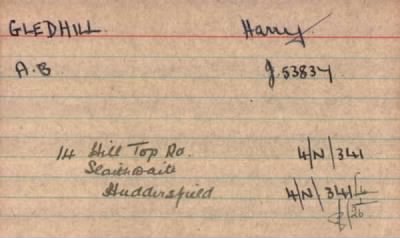 GLEDHILL. Harry
A.B J.53837
14 Hill Top Rd. 4/N/341
Slaithwaite
Huddersfield 4/N/341